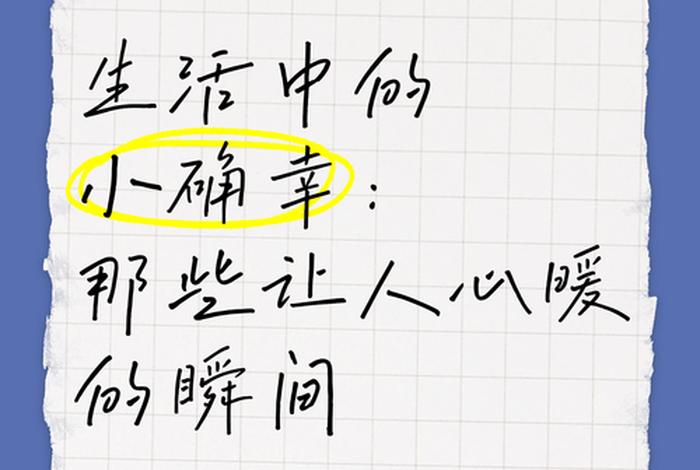 生活中的
小确幸：
那些让人心暖
的瞬间